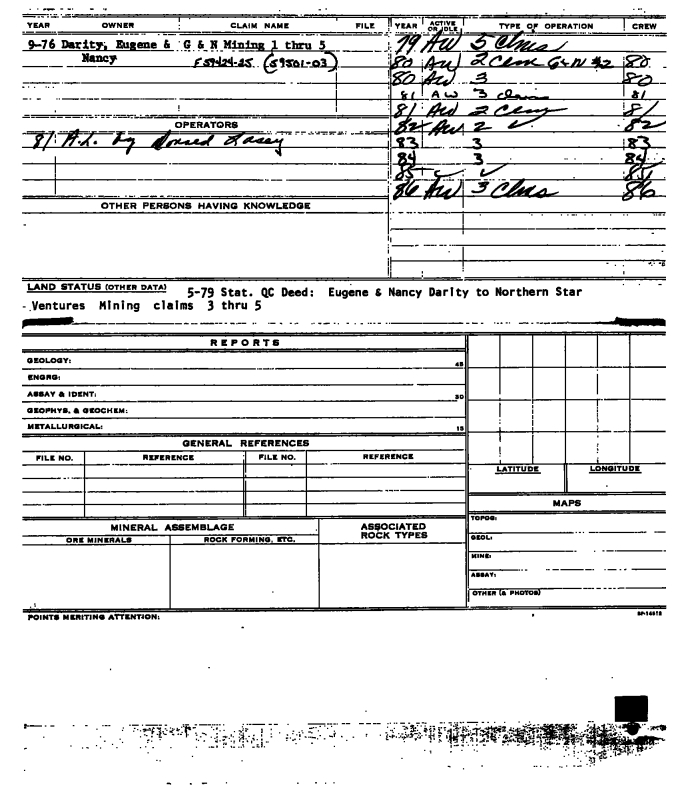 YEAR OWNER CLAIM NAME FILE YEAR ACTIVE OR IDLE TYPE OF OPERATION CREW
9-76 Darity, Eugene & G & N Mining 1 thru 5 79 AW 5 Clms
Nancy F59424-25 (59501-03) 80 AW 2 Clm G&N #2 80
80 AW 3 80
81 AW 3 claim 81
81 AW 2 Clms 81
OPERATORS 82 AW 2 ✓ 82
81 A.L. by Donald Lasey 83 3 83
84 3 84
85 ✓ ✓ 85
86 AW 3 Clms 86
OTHER PERSONS HAVING KNOWLEDGE
LAND STATUS (OTHER DATA) 5-79 Stat. QC Deed: Eugene & Nancy Darity to Northern Star
Ventures Mining claims 3 thru 5
REPORTS
GEOLOGY: 45
ENGRG:
ASSAY & IDENT: 30
GEOPHYS. & GEOCHEM:
METALLURGICAL: 15
GENERAL REFERENCES
FILE NO. REFERENCE FILE NO. REFERENCE
LATITUDE LONGITUDE
MAPS
MINERAL ASSEMBLAGE ASSOCIATED ROCK TYPES
ORE MINERALS ROCK FORMING, ETC.
TOPOG:
GEOL:
MINE:
ASSAY:
OTHER (& PHOTOS)
POINTS MERITING ATTENTION: